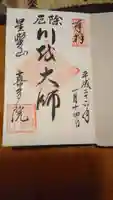 奉拝
厄除
川越大師
平成二十六年
一月十四日
星野山
喜多院